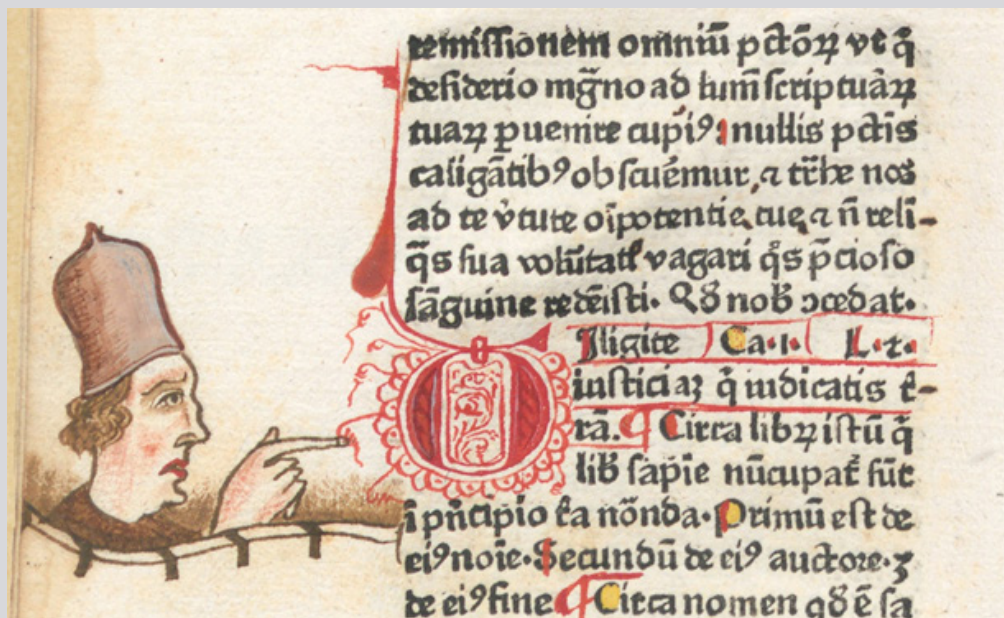 remissionem omniū pctōꝝ vt q̄
desiderio mḡno ad lumē scriptuāꝝ
tuaꝝ ꝑuenire cupiꝰ nullis pctīs
caligātibꝰ obscuēmur, ⁊ trhe nos
ad te v̓tute oīpotentie tue ⁊ n̄ reli-
q̄s sua volūtate vagari q̊s p̄cioso
sāguine redēisti. Qd̓ nob̓ ↄcedat.
Diligite Ca.1. L.2.
iusticiaꝫ q̄ iudicatis t̓-
rā. ¶ Circa libꝝ istū q̄
lib̓ sapīe nūcupat̄ sūt
ī pn̄cipio t̓a nōnda. Primū est de
eiꝰ noīe. Secundū de eiꝰ auctore. 3
de eiꝰ fine ¶ Circa nomen qd̓ ē sa